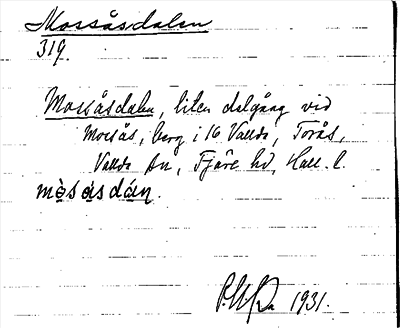 Mossåsdalen
319.
Mossåsdalen, liten dalgång vid
Mossås, berg i 16 Vallda, Torås,
Vallda sn, Fjäre hd, Hall. l.
1931.